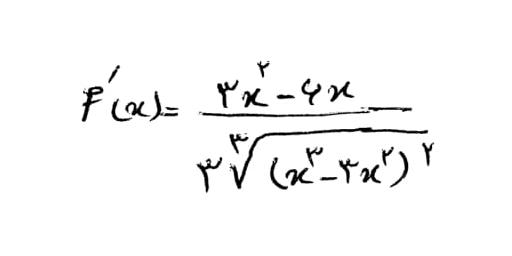 F′(x) = (۳x^۲ - ۶x) / (۳ ∛((x^۳ - ۳x^۲)^۲))